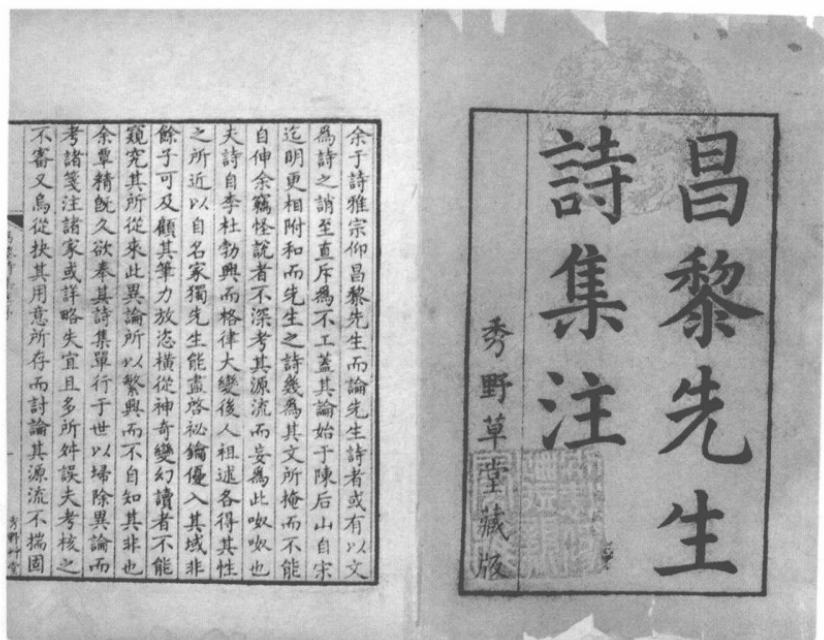 昌黎先生
詩集注
秀野草堂藏版
余于詩雅宗仰昌黎先生而論先生詩者或有以文
爲詩之誚至直斥爲不工蓋其論始于陳后山自宋
迄明更相附和而先生之詩幾爲其文所掩而不能
自伸余竊怪說者不深考其源流而妄爲此呶呶也
夫詩自李杜勃興而格律大變後人祖述各得其性
之所近以自名家獨先生能盡啓祕鑰優入其域非
餘子可及顧其筆力放恣橫從神奇變幻讀者不能
窺究其所從來此異論所以繁興而不自知其非也
余覃精旣久欲奉其詩集單行于世以埽除異論而
考諸箋注諸家或詳略失宜且多所舛誤夫考核之
不審又烏從抉其用意所存而討論其源流不揣固
秀野艸堂